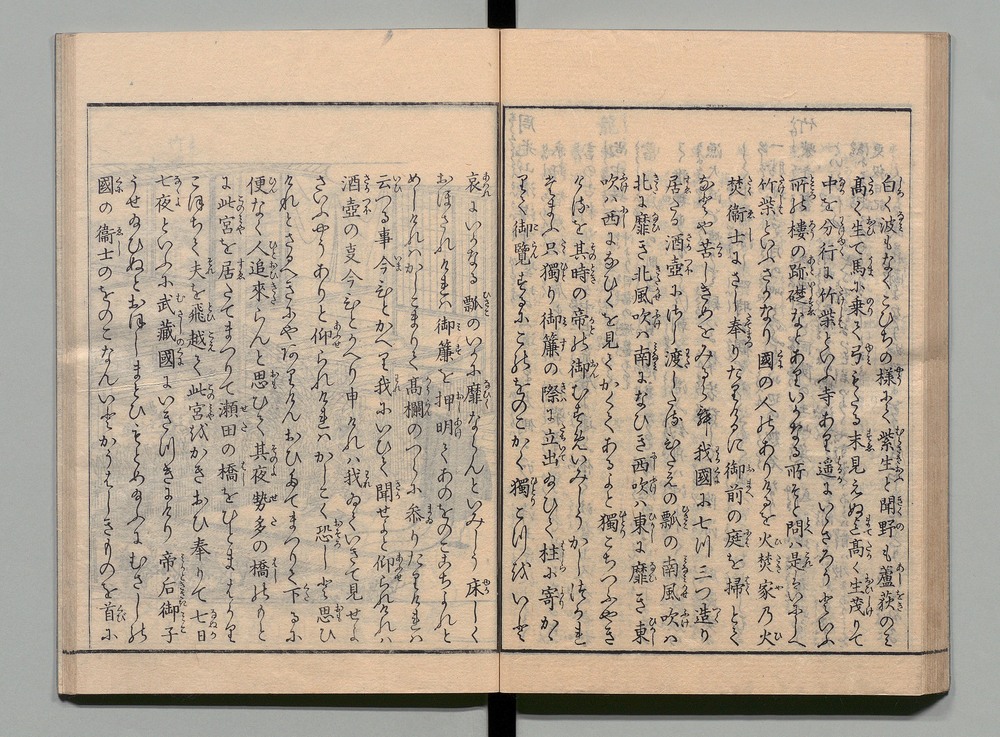 白く波もなくこひちの様にて紫生と聞野も蘆荻のミ
高く生て馬に乗て弓もたる末見えぬまて高く生茂りて
中を分行に竹柴といふ寺あり遥にいくさろうといふ
所の樓の跡礎なとありいかなる所そと問へは是ハいにしへ
竹柴といふさかなり國の人のありけるを火焚家の火
焚衞士にさし奉りたりけるに御前の庭を掃とて
なとや苦しきめをみるらん我國に七つ三つ造り
居たる酒壺にさし渡したるひたえの瓢の南風吹ハ
北に靡き北風吹ハ南になひき西吹ハ東に靡き東
吹ハ西になひくを見てかくてあるよと獨こちつふやき
けるを其時の帝の御むすめいみしうかしつかれ
たまふ只獨り御簾の際に立出たまひて柱に寄かゝ
りて御覽するにこのをのこかく獨こつをいと
哀にいかなる瓢のいかに靡ならんといみしう床しく
おほされけれハ御簾を押明てあのをのこちよれと
めしけれハかしこまりて高欄のつらに参りたりけれハ
云つる事今ひとかへり我にいひて聞せよと仰られけれハ
酒壺の事今ひとかへり申けれハ我ゐていきて見せよ
さいふやうありと仰られけれハかしこく恐しと思ひ
けれとさるへきにやありけんおひたてまつりて下るに
便なく人追來らんと思ひて其夜勢多の橋のもと
に此宮を居たてまつりて瀬田の橋をひとまはかり
こほちて夫を飛越て此宮をかきおひ奉りて七日
七夜といふに武藏國にいきつきにけり 帝后御子
うせたまひぬとおほしまとひもとめたまふにむさしの
國の衞士のをのこなんいとかうはしきものを首に